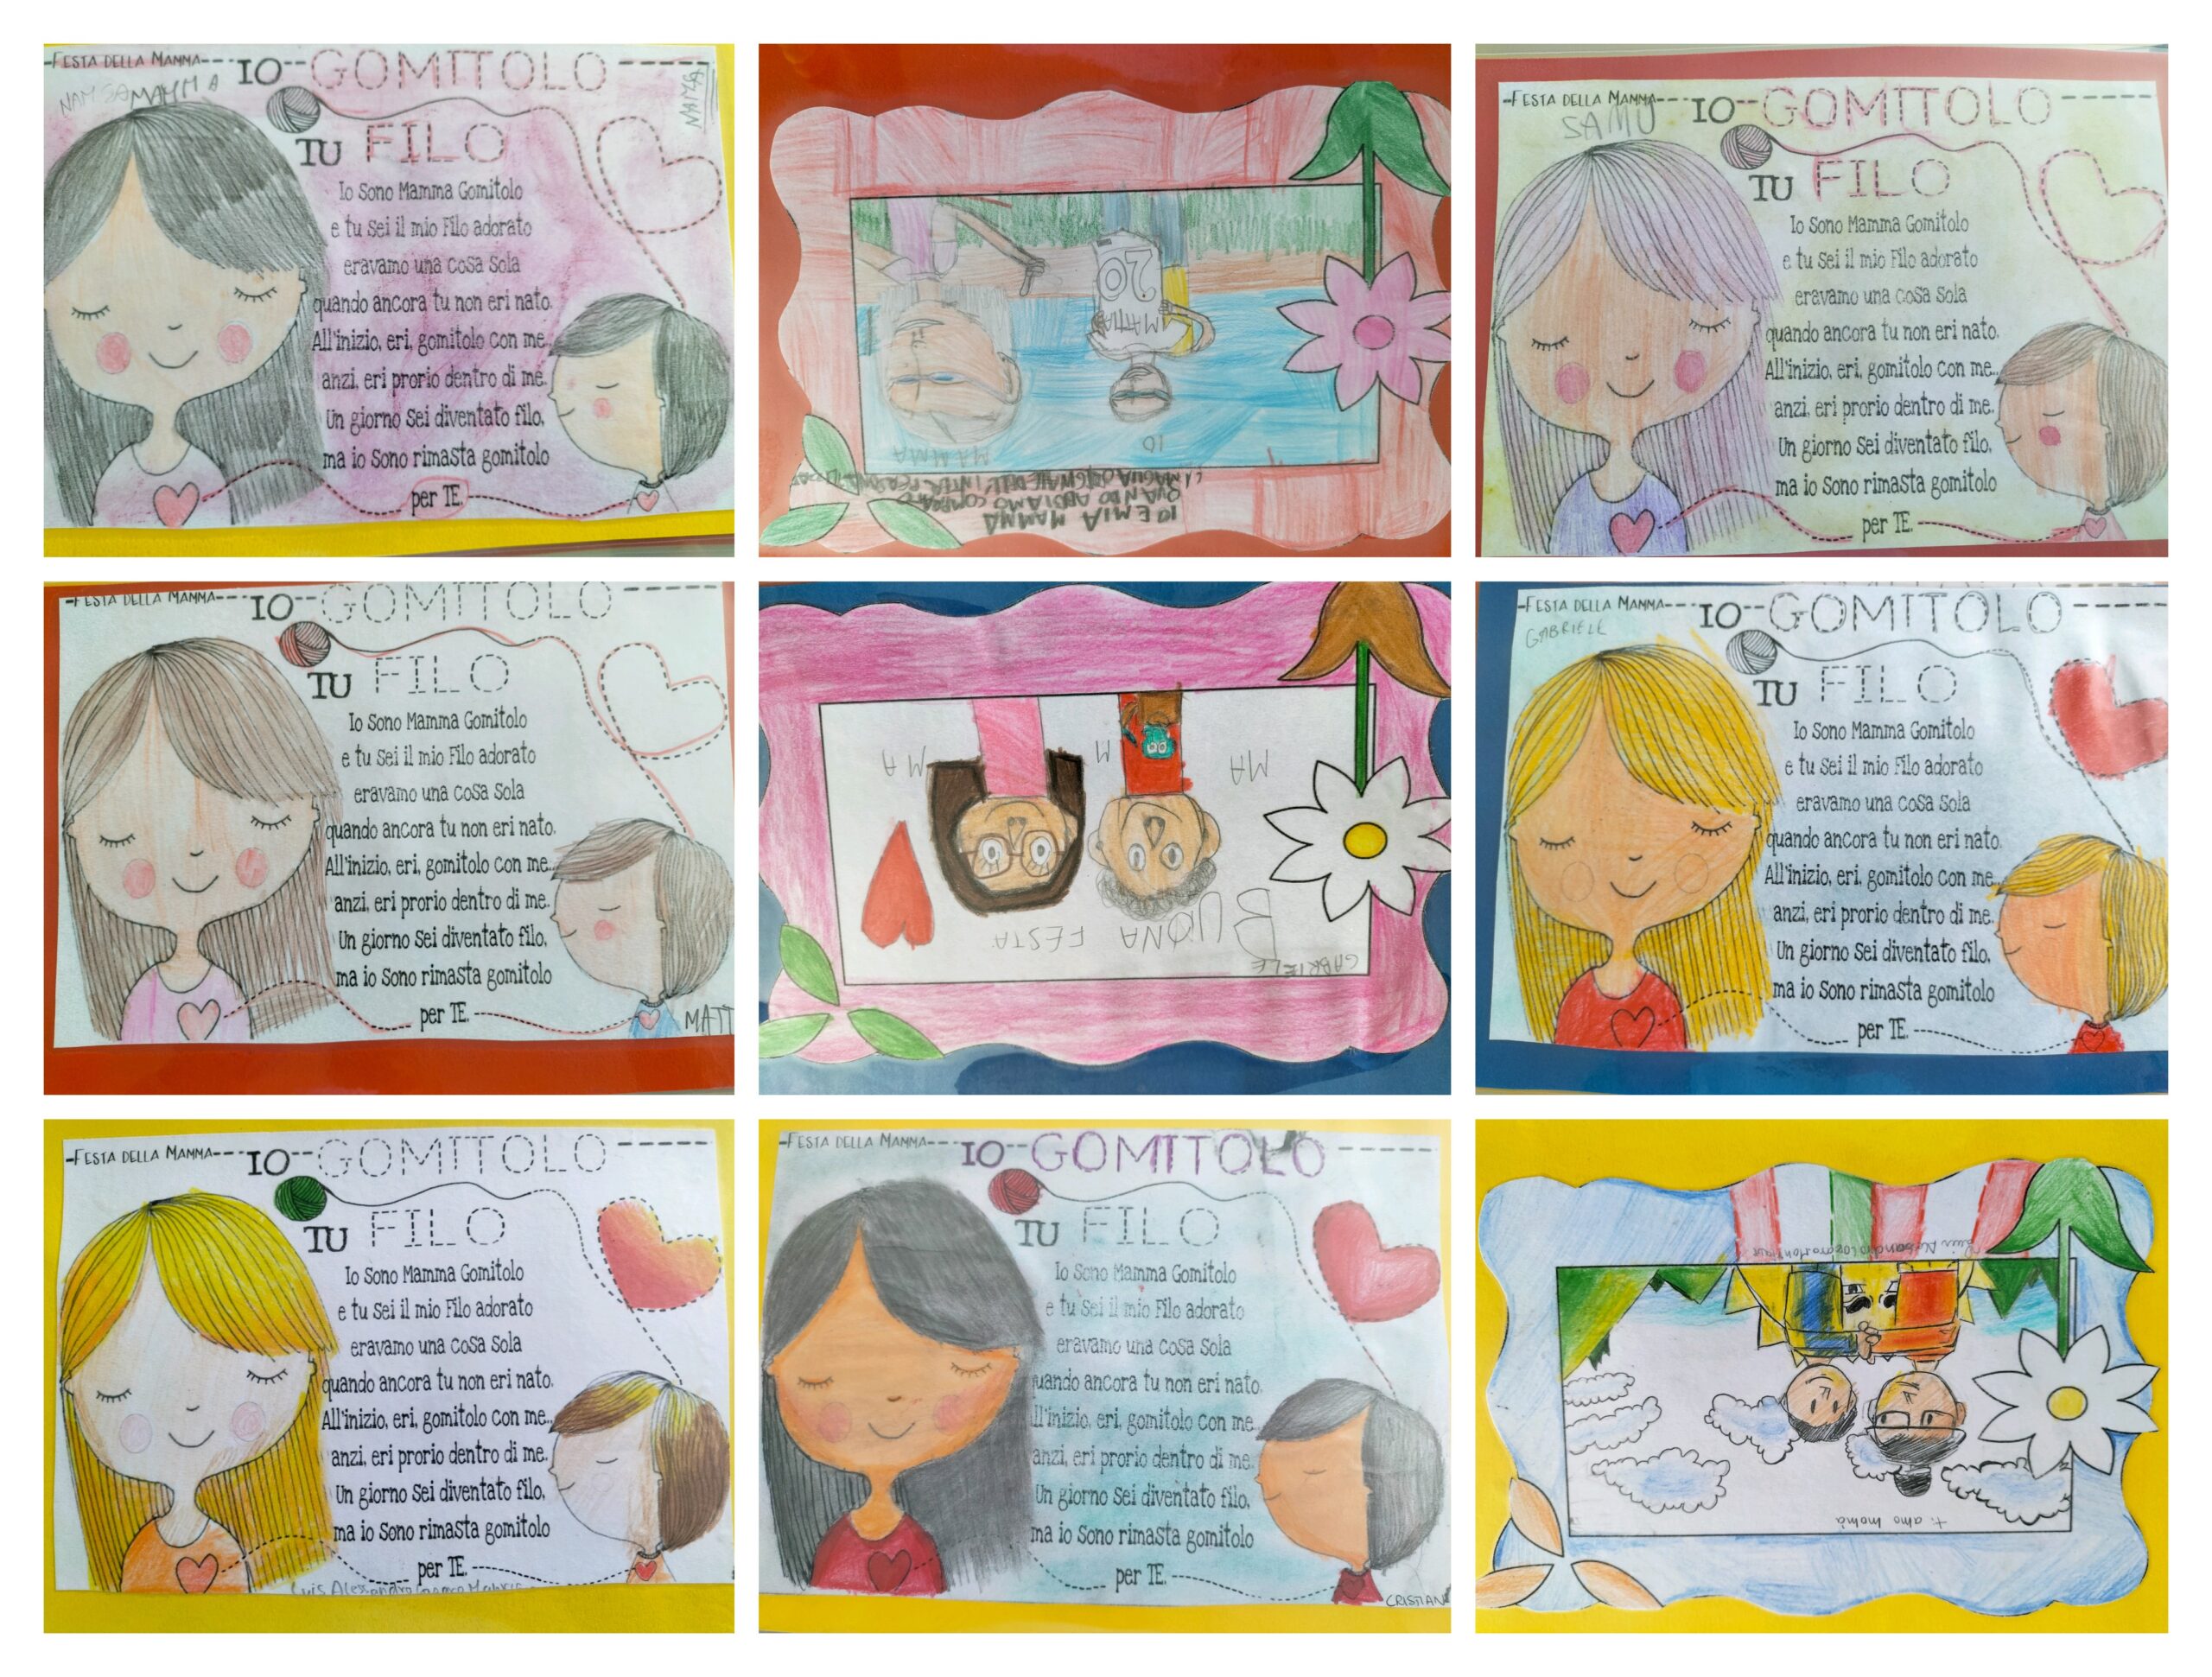 -FESTA DELLA MAMMA---IO--GOMITOLO
MAMMA
TU FILO
Io Sono Mamma Gomitolo
e tu Sei il mio Filo adorato
eravamo una cosa Sola
quando ancora tu non eri nato.
All'inizio, eri, gomitolo con me..
anzi, eri prorio dentro di me.
Un giorno Sei diventato filo,
ma io Sono rimasta gomitolo
per TE.
IO E MIA MAMMA
QUANDO ABBIAMO COMPRATO
MAMMA
IO
MATTIA
20
-FESTA DELLA MAMMA---IO--GOMITOLO
SAMU
TU FILO
Io Sono Mamma Gomitolo
e tu Sei il mio Filo adorato
eravamo una cosa Sola
quando ancora tu non eri nato.
All'inizio, eri, gomitolo con me..
anzi, eri prorio dentro di me.
Un giorno Sei diventato filo,
ma io Sono rimasta gomitolo
per TE.
-FESTA DELLA MAMMA---IO--GOMITOLO
TU FILO
Io Sono Mamma Gomitolo
e tu Sei il mio Filo adorato
eravamo una cosa Sola
quando ancora tu non eri nato.
All'inizio, eri, gomitolo con me..
anzi, eri prorio dentro di me.
Un giorno Sei diventato filo,
ma io Sono rimasta gomitolo
per TE.
MATT
GABRIELE
BUONA FESTA
MA M MA
-FESTA DELLA MAMMA---IO--GOMITOLO
GABRIELE
TU FILO
Io Sono Mamma Gomitolo
e tu Sei il mio Filo adorato
eravamo una cosa Sola
quando ancora tu non eri nato.
All'inizio, eri, gomitolo con me..
anzi, eri prorio dentro di me.
Un giorno Sei diventato filo,
ma io Sono rimasta gomitolo
per TE.
-FESTA DELLA MAMMA---IO--GOMITOLO
TU FILO
Io Sono Mamma Gomitolo
e tu Sei il mio Filo adorato
eravamo una cosa Sola
quando ancora tu non eri nato.
All'inizio, eri, gomitolo con me..
anzi, eri prorio dentro di me.
Un giorno Sei diventato filo,
ma io Sono rimasta gomitolo
per TE.
Luis Alessandro
-FESTA DELLA MAMMA---IO--GOMITOLO
TU FILO
Io Sono Mamma Gomitolo
e tu Sei il mio Filo adorato
eravamo una cosa Sola
uando ancora tu non eri nato.
ll'inizio, eri, gomitolo con me..
anzi, eri prorio dentro di me.
Un giorno Sei diventato filo,
ma io Sono rimasta gomitolo
per TE.
CRISTIAN
ti amo mamà
Luis Alessandro